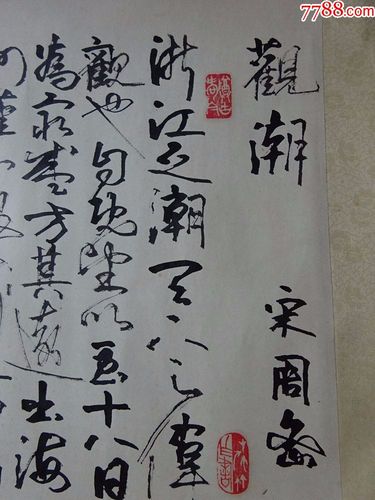 7788.com
觀潮 宋周密
浙江之潮天下之偉
觀也自既望以至十八日
為最盛方其遠出海